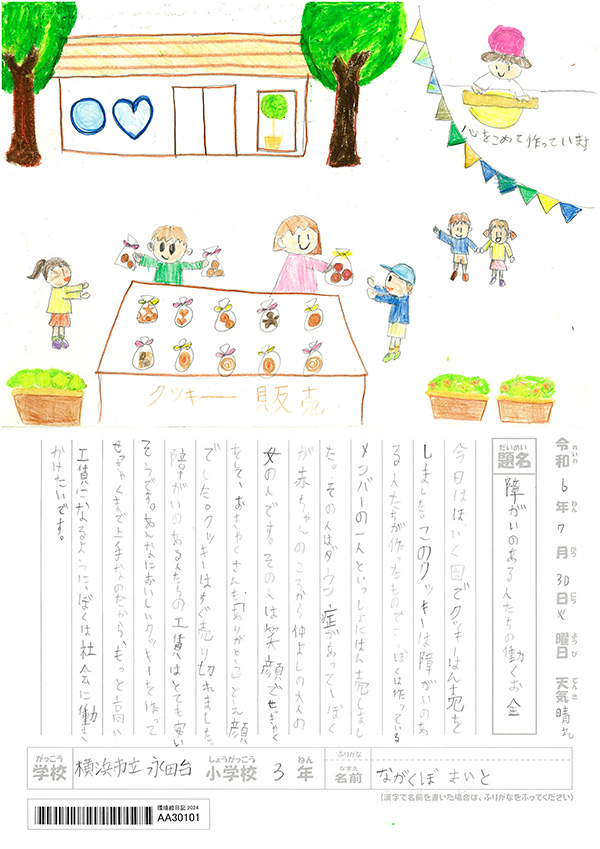 心をこめて作っています
クッキー 販売
令和6年7月30日火曜日 天気 晴れ
れいわ ねん がつ にち ようび てんき
だいめい
題名
障がいのある人たちの働くお金
今日は、ほいく園でクッキーはん売を
しました。このクッキーは障がいのあ
る人たちが作ったものです。ぼくは作っている
メンバーの一人といっしょにはん売しまし
た。その人はダウン症があって、ぼく
が赤ちゃんのころから仲よしの大人の
女の人です。その人は笑顔でせっきゃく
をして、おきゃくさんも「ありがとう」とえ顔
でした。クッキーはすぐ売り切れました。
障がいのある人たちの工賃はとても安い
そうです。あんなにおいしいクッキーを作って
せっきゃくまで上手なのだから、もっと高い
工賃になるように、ぼくは社会に働き
かけたいです。
がっこう しょうがっこう ねん
学校 横浜市立 永田台 小学校 3年
ふりがな
なまえ
名前 ながくぼ まいと
(漢字で名前を書いた場合は、ふりがなをふってください)
環境絵日記2024
AA30101